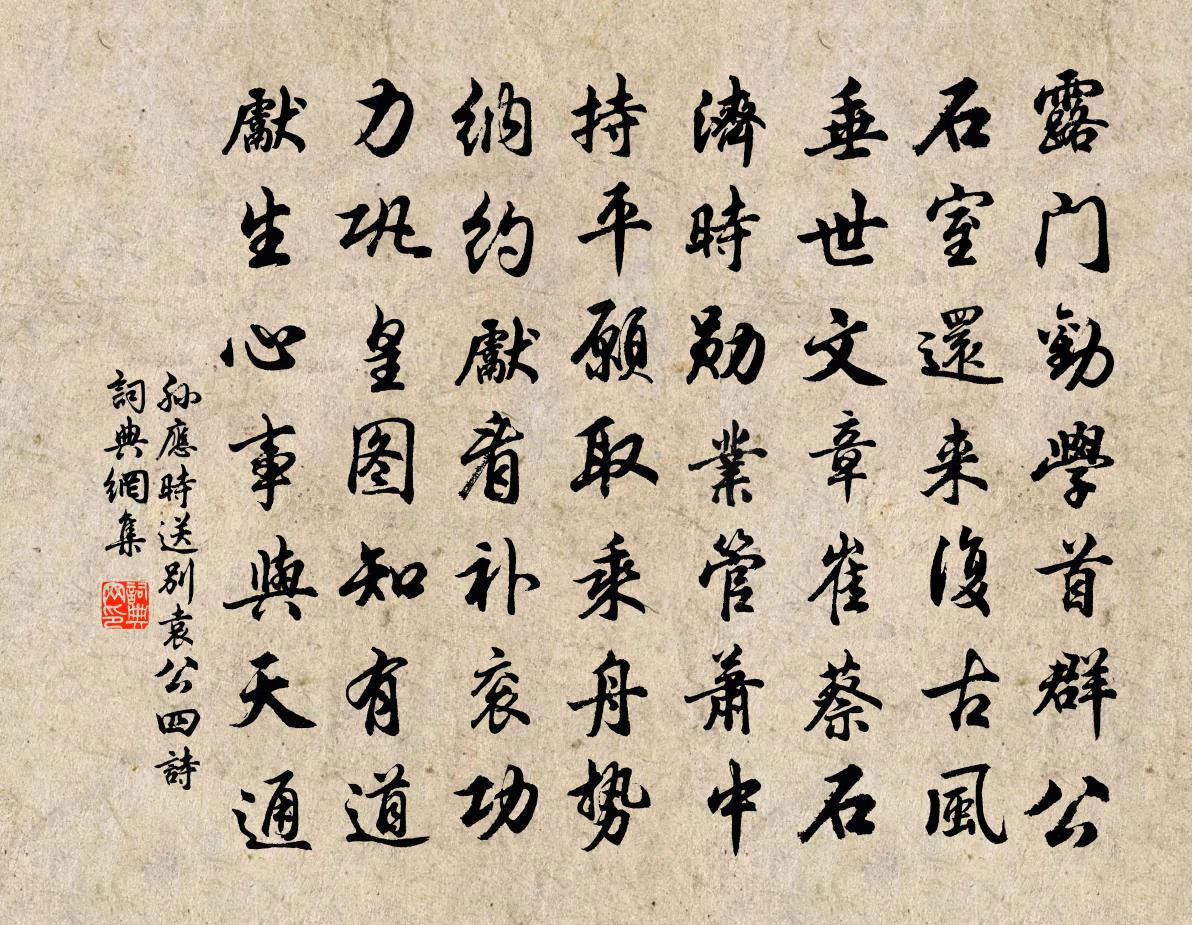 露门勸學首群公
石室還来復古風
垂世文章崔蔡石
濟時勋業管蕭中
持平願取乘舟势
纳约獻看补衮功
力巩皇图知有道
獻生心事與天通
孫應時送别袁公四詩
詞典網集
詞典网印